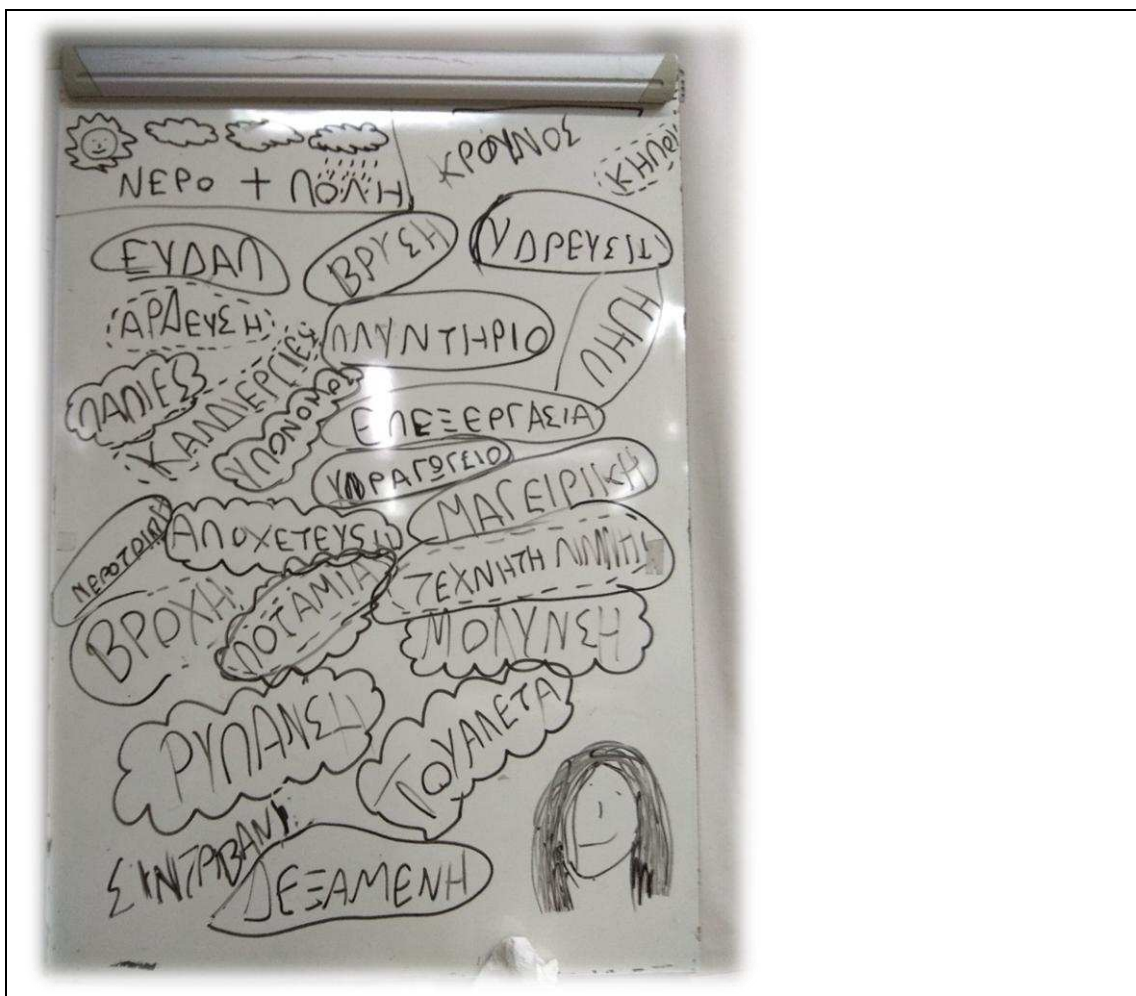 ΝΕΡΟ + ΠΟΛΗ
ΚΡΟΥΝΟΣ
ΚΗΠΟΙ
ΕΥΔΑΠ
ΒΡΥΣΗ
ΥΔΡΕΥΣΗ
ΑΡΔΕΥΣΗ
ΠΛΥΝΤΗΡΙΟ
ΠΗΓΗ
ΠΑΠΙΕΣ
ΚΑΛΛΙΕΡΓΙΕΣ
ΕΠΕΞΕΡΓΑΣΙΑ
ΥΔΡΑΓΩΓΕΙΟ
ΜΑΓΕΙΡΙΚΗ
ΑΠΟΧΕΤΕΥΣΗ
ΤΕΧΝΗΤΗ ΛΙΜΝΗ
ΒΡΟΧΗ
ΠΟΤΑΜΙΑ
ΜΟΛΥΝΣΗ
ΡΥΠΑΝΣΗ
ΤΟΥΑΛΕΤΑ
ΣΙΝΤΡΙΒΑΝΙ
ΔΕΞΑΜΕΝΗ